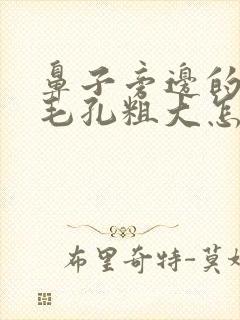 鼻子旁边的
毛孔粗大怎
布里奇特-莫